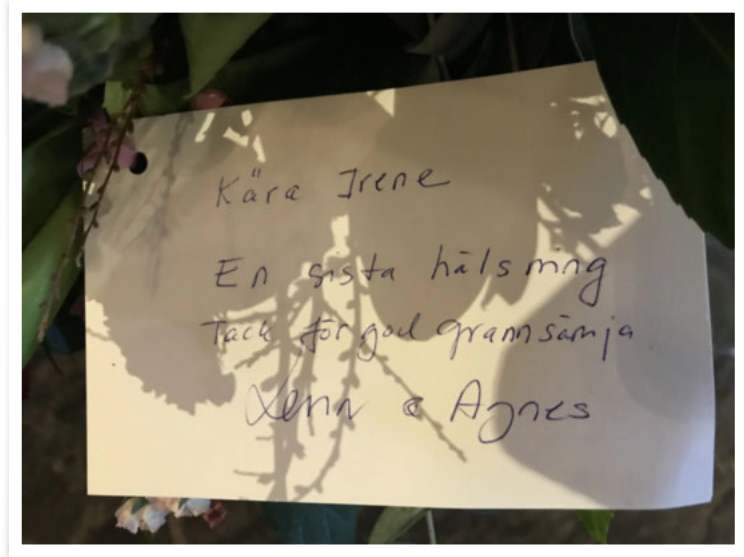 Kära Irene
En sista hälsning
Tack för god grannsämja
Lenn & Agnes